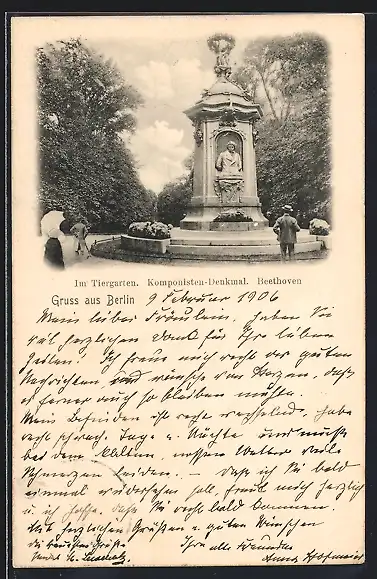 Im Tiergarten. Komponisten-Denkmal. Beethoven
Gruss aus Berlin 9 Februar 1906
Mein liebes Fräulein. Haben Sie
herzlichen Dank für Ihre lieben
Zeilen! Ich freue mich recht der guten
Nachrichten und wünsche von Herzen, daß
es ferner auch so bleiben möchte.
Mein Befinden ist recht wechselnd, habe
recht Tage u. Nächte und mußte
bei dem kalten, nassen Wetter viele
Schmerzen leiden. – Daß ich Sie bald
einmal wiedersehen soll, freut mich herzlich
u. ich hoffe, daß Sie recht bald kommen.
Mit herzlichen Grüßen u. guten Wünschen
die Grüße Ihre alte Freundin
Anna